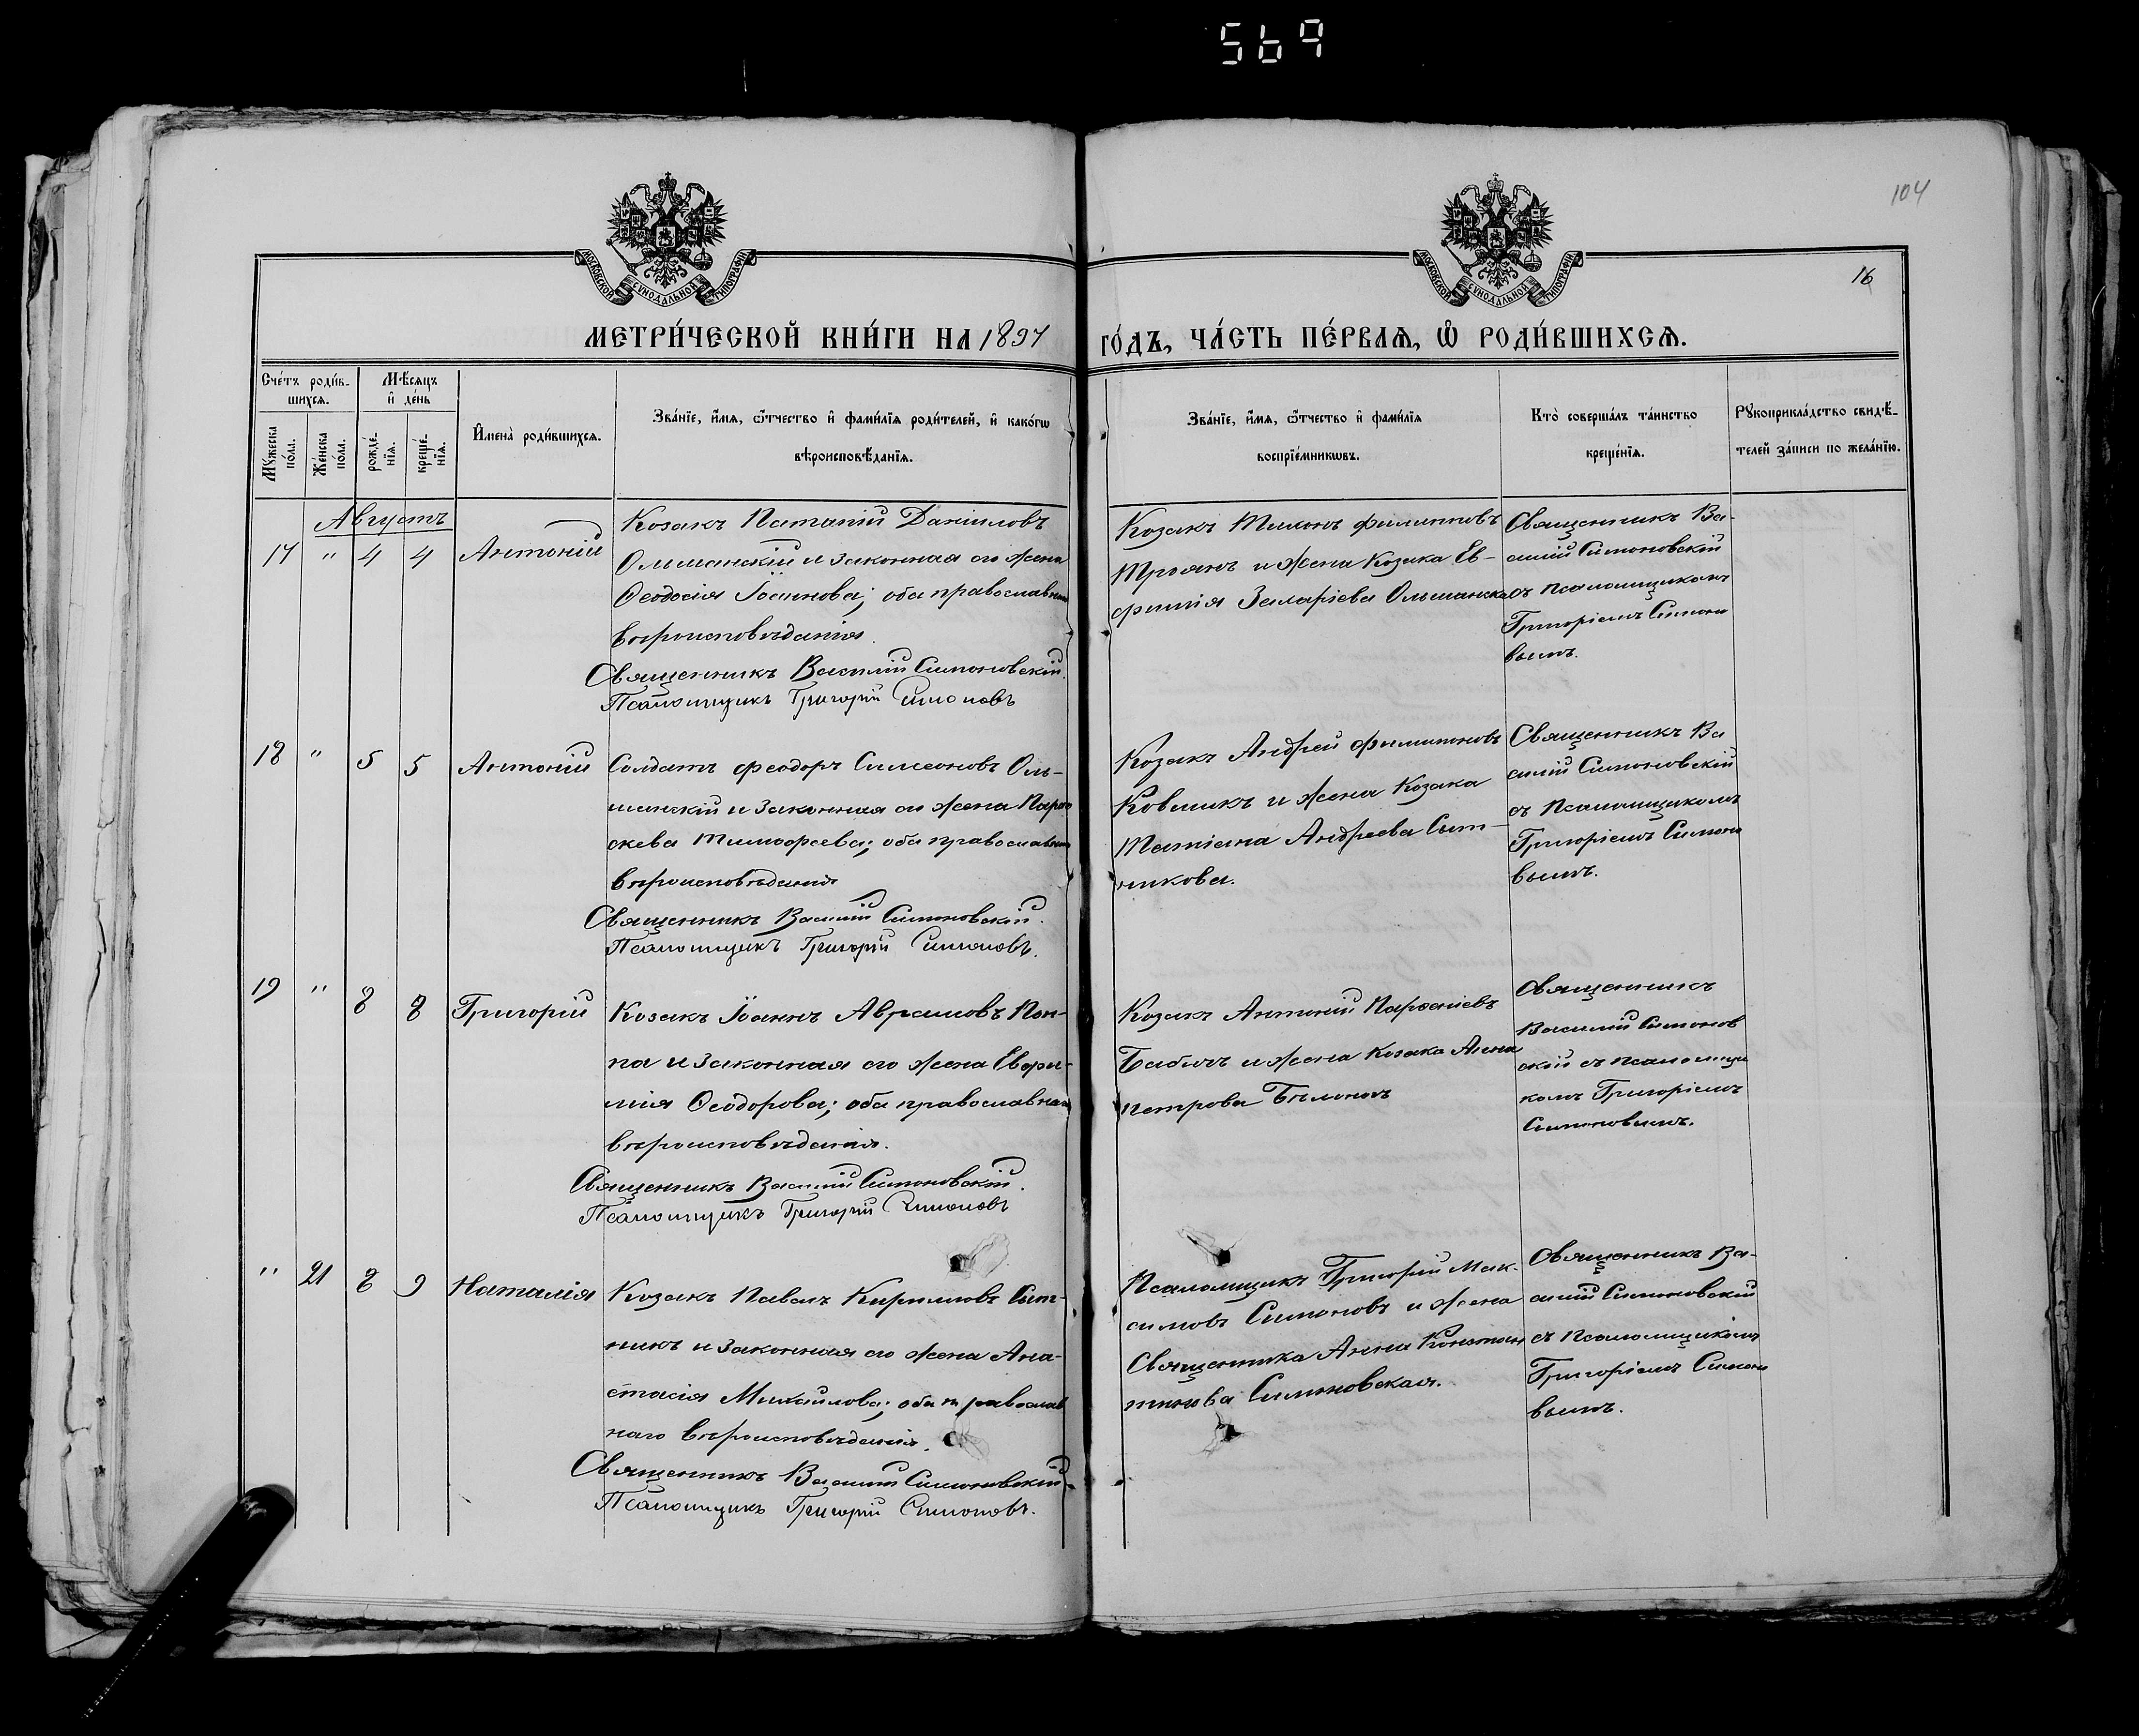 569
104
16
МОСКОВСКОЙ СѴНОДАЛЬНОЙ ТИПОГРАФІИ
МОСКОВСКОЙ СѴНОДАЛЬНОЙ ТИПОГРАФІИ
МЕТРИ́ЧЕСКОЙ КНИ́ГИ НА 1897
ГО́ДЪ, ЧА́СТЬ ПЕ́РВАѦ, Ѡ҆ РОДИ́ВШИХСѦ.
Сче́тъ роди́в-
шихсѧ.
Мѣ́сѧцъ
и҆ де́нь
Мꙋ́жеска
по́ла.
Же́нска
по́ла.
рожде́-
нїѧ.
креще́-
нїѧ.
И҆мена̀ роди́вшихсѧ.
Зва́нїе, и҆́мѧ, ѻ҆́тчество и҆ фами́лїѧ роди́телей, и҆ како́гѡ
вѣроисповѣ́данїѧ.
Зва́нїе, и҆́мѧ, ѻ҆́тчество и҆ фами́лїѧ
воспрїе́мникѡвъ.
Кто̀ соверша́лъ та́инство
креще́нїѧ.
Рꙋкоприкла́дство свидѣ́-
телей за́писи по жела́нїю.
Августъ
17 " 4 4 Антоній
Козакъ Ипатій Даніиловъ
Ольшанскій и законная его жена
Ѳеодосія Іоаннова; оба православнаго
вѣроисповѣданія.
Священникъ Василій Симоновскій.
Псаломщикъ Григорій Симоновъ
Козакъ Тихонъ Филипповъ
Троянъ и жена козака Ев-
фимія Захаріева Ольшанская
Священникъ Ва-
силій Симоновскій
съ псаломщикомъ
Григоріемъ Симоно
вымъ.
18 " 5 5 Антоній
Солдатъ Феодоръ Симеоновъ Оль-
шанскій и законная его жена Парас
кева Тимофеева; оба православнаго
вѣроисповѣданія
Священникъ Василій Симоновскій.
Псаломщикъ Григорій Симоновъ.
Козакъ Андрей Филипповъ
Ковшикъ и жена козака
Татіана Андреева Сыт-
никова.
Священникъ Ва
силій Симоновскій
съ Псаломщикомъ
Григоріемъ Симоно
вымъ.
19 " 8 8 Григорій
Козакъ Іоаннъ Аврамовъ Поп-
па и законная его жена Евфи-
мія Ѳеодорова; оба православнаго
вѣроисповѣданія.
Священникъ Василій Симоновскій.
Псаломщикъ Григорій Симоновъ
Козакъ Антоній Парѳеніевъ
Бабичъ и жена козака Анна
Петрова Бѣлоконь
Священникъ
Василій Симонов
скій съ псаломщи
комъ Григоріемъ
Симоновымъ.
" 21 8 9 Наталія
Козакъ Павелъ Кириловъ Сыт-
никъ и законная его жена Ана-
стасія Михайлова; оба православ
наго вѣроисповѣданія.
Священникъ Василій Симоновскій.
Псаломщикъ Григорій Симоновъ.
Псаломщикъ Григорій Мак-
симовъ Симоновъ и жена
Священника Анна Констан
тинова Симоновская.
Священникъ Ва-
силій Симоновскій
съ псаломщикомъ
Григоріемъ Симоно
вымъ.